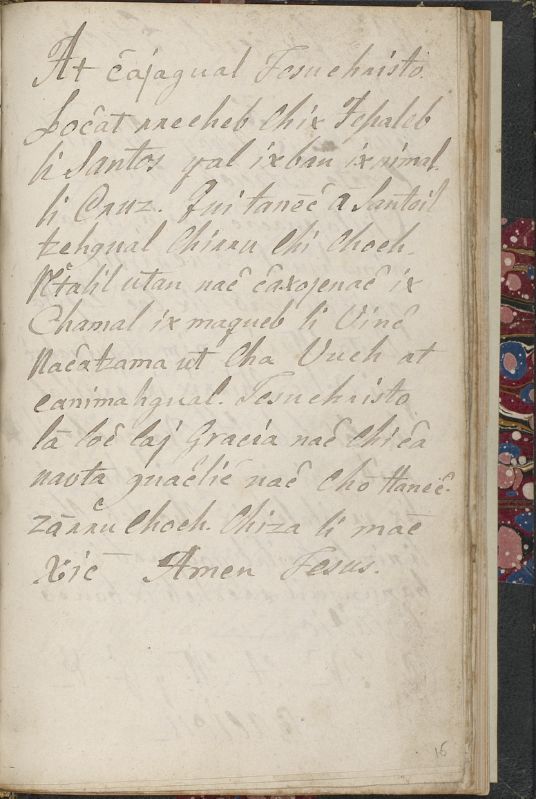 At ĉajagual Jesuchristo.
Loĉat rreeheb Chix Tepaleb
li Santos yal ixban ix nimal
li Cruz. Qui tanēĉ ā Santoil
tzehgual Chirru Chi Choch.
utan naĉ ĉaxojenaĉ ix
Chamal ix maqueb li Uinĉ
Naĉatzama ut Cha Vuch at
canimahgual. Jesuchristo
lā loĉ laj Gracia naĉ Chiĉa
naota gnaĉlic naĉ Cho
zārru Choch. Chiza li māc
xiĉ Amen Jesus.
16